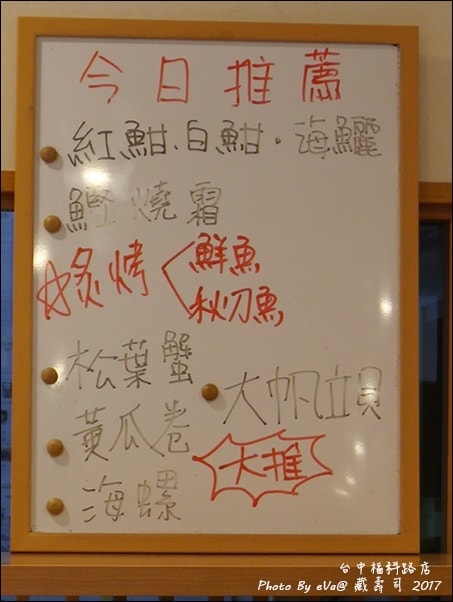 今日推薦
紅魽、白魽·海鱺
鰹燒霜
炙烤
鮮魚
秋刀魚
松葉蟹
大帆立貝
黃瓜卷
大推
海螺
台中福科路店
Photo By eVa@ 藏壽司 2017